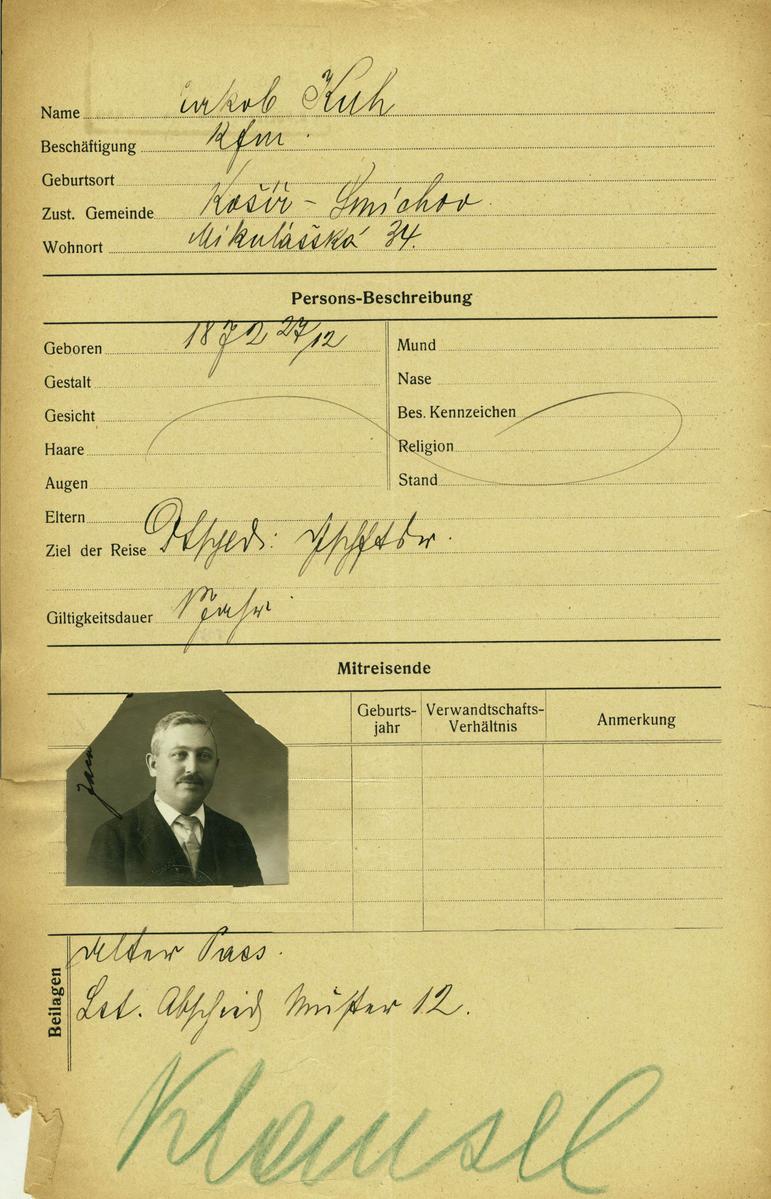 Name Jakob Kuh
Beschäftigung Kfm.
Geburtsort
Zust. Gemeinde Košíř - Smíchov
Wohnort Mikulášská 34.
Persons-Beschreibung
Geboren 1872 27/12
Gestalt
Gesicht
Haare
Augen
Mund
Nase
Bes. Kennzeichen
Religion
Stand
Eltern
Ziel der Reise
Giltigkeitsdauer 1 Jahr
Mitreisende
Geburts-
jahr
Verwandtschafts-
Verhältnis
Anmerkung
Beilagen
alter Pass.
Lst. Abschied Muster 12.